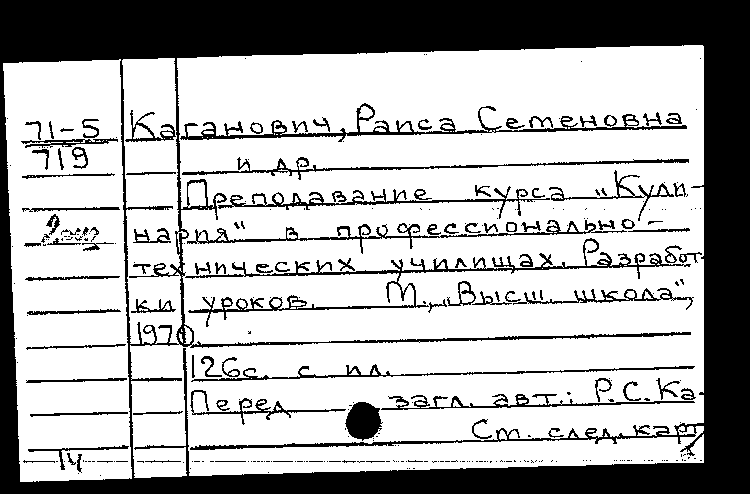 71-5 Каганович, Раиса Семеновна
719 и др.
Преподавание курса „Кули-
нария" в профессионально-
технических училищах. Разработ-
ки уроков. М., „Высш. школа",
1970.
126с. с ил.
Перед загл. авт.: Р.С.Ка-
Ст. след. карт
14